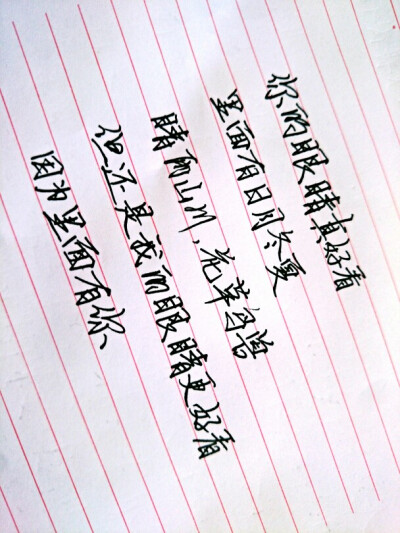 你的眼睛真好看
里面有日月冬夏
晴雨山川，花草鸟兽
但还是我的眼睛更好看
因为里面有你